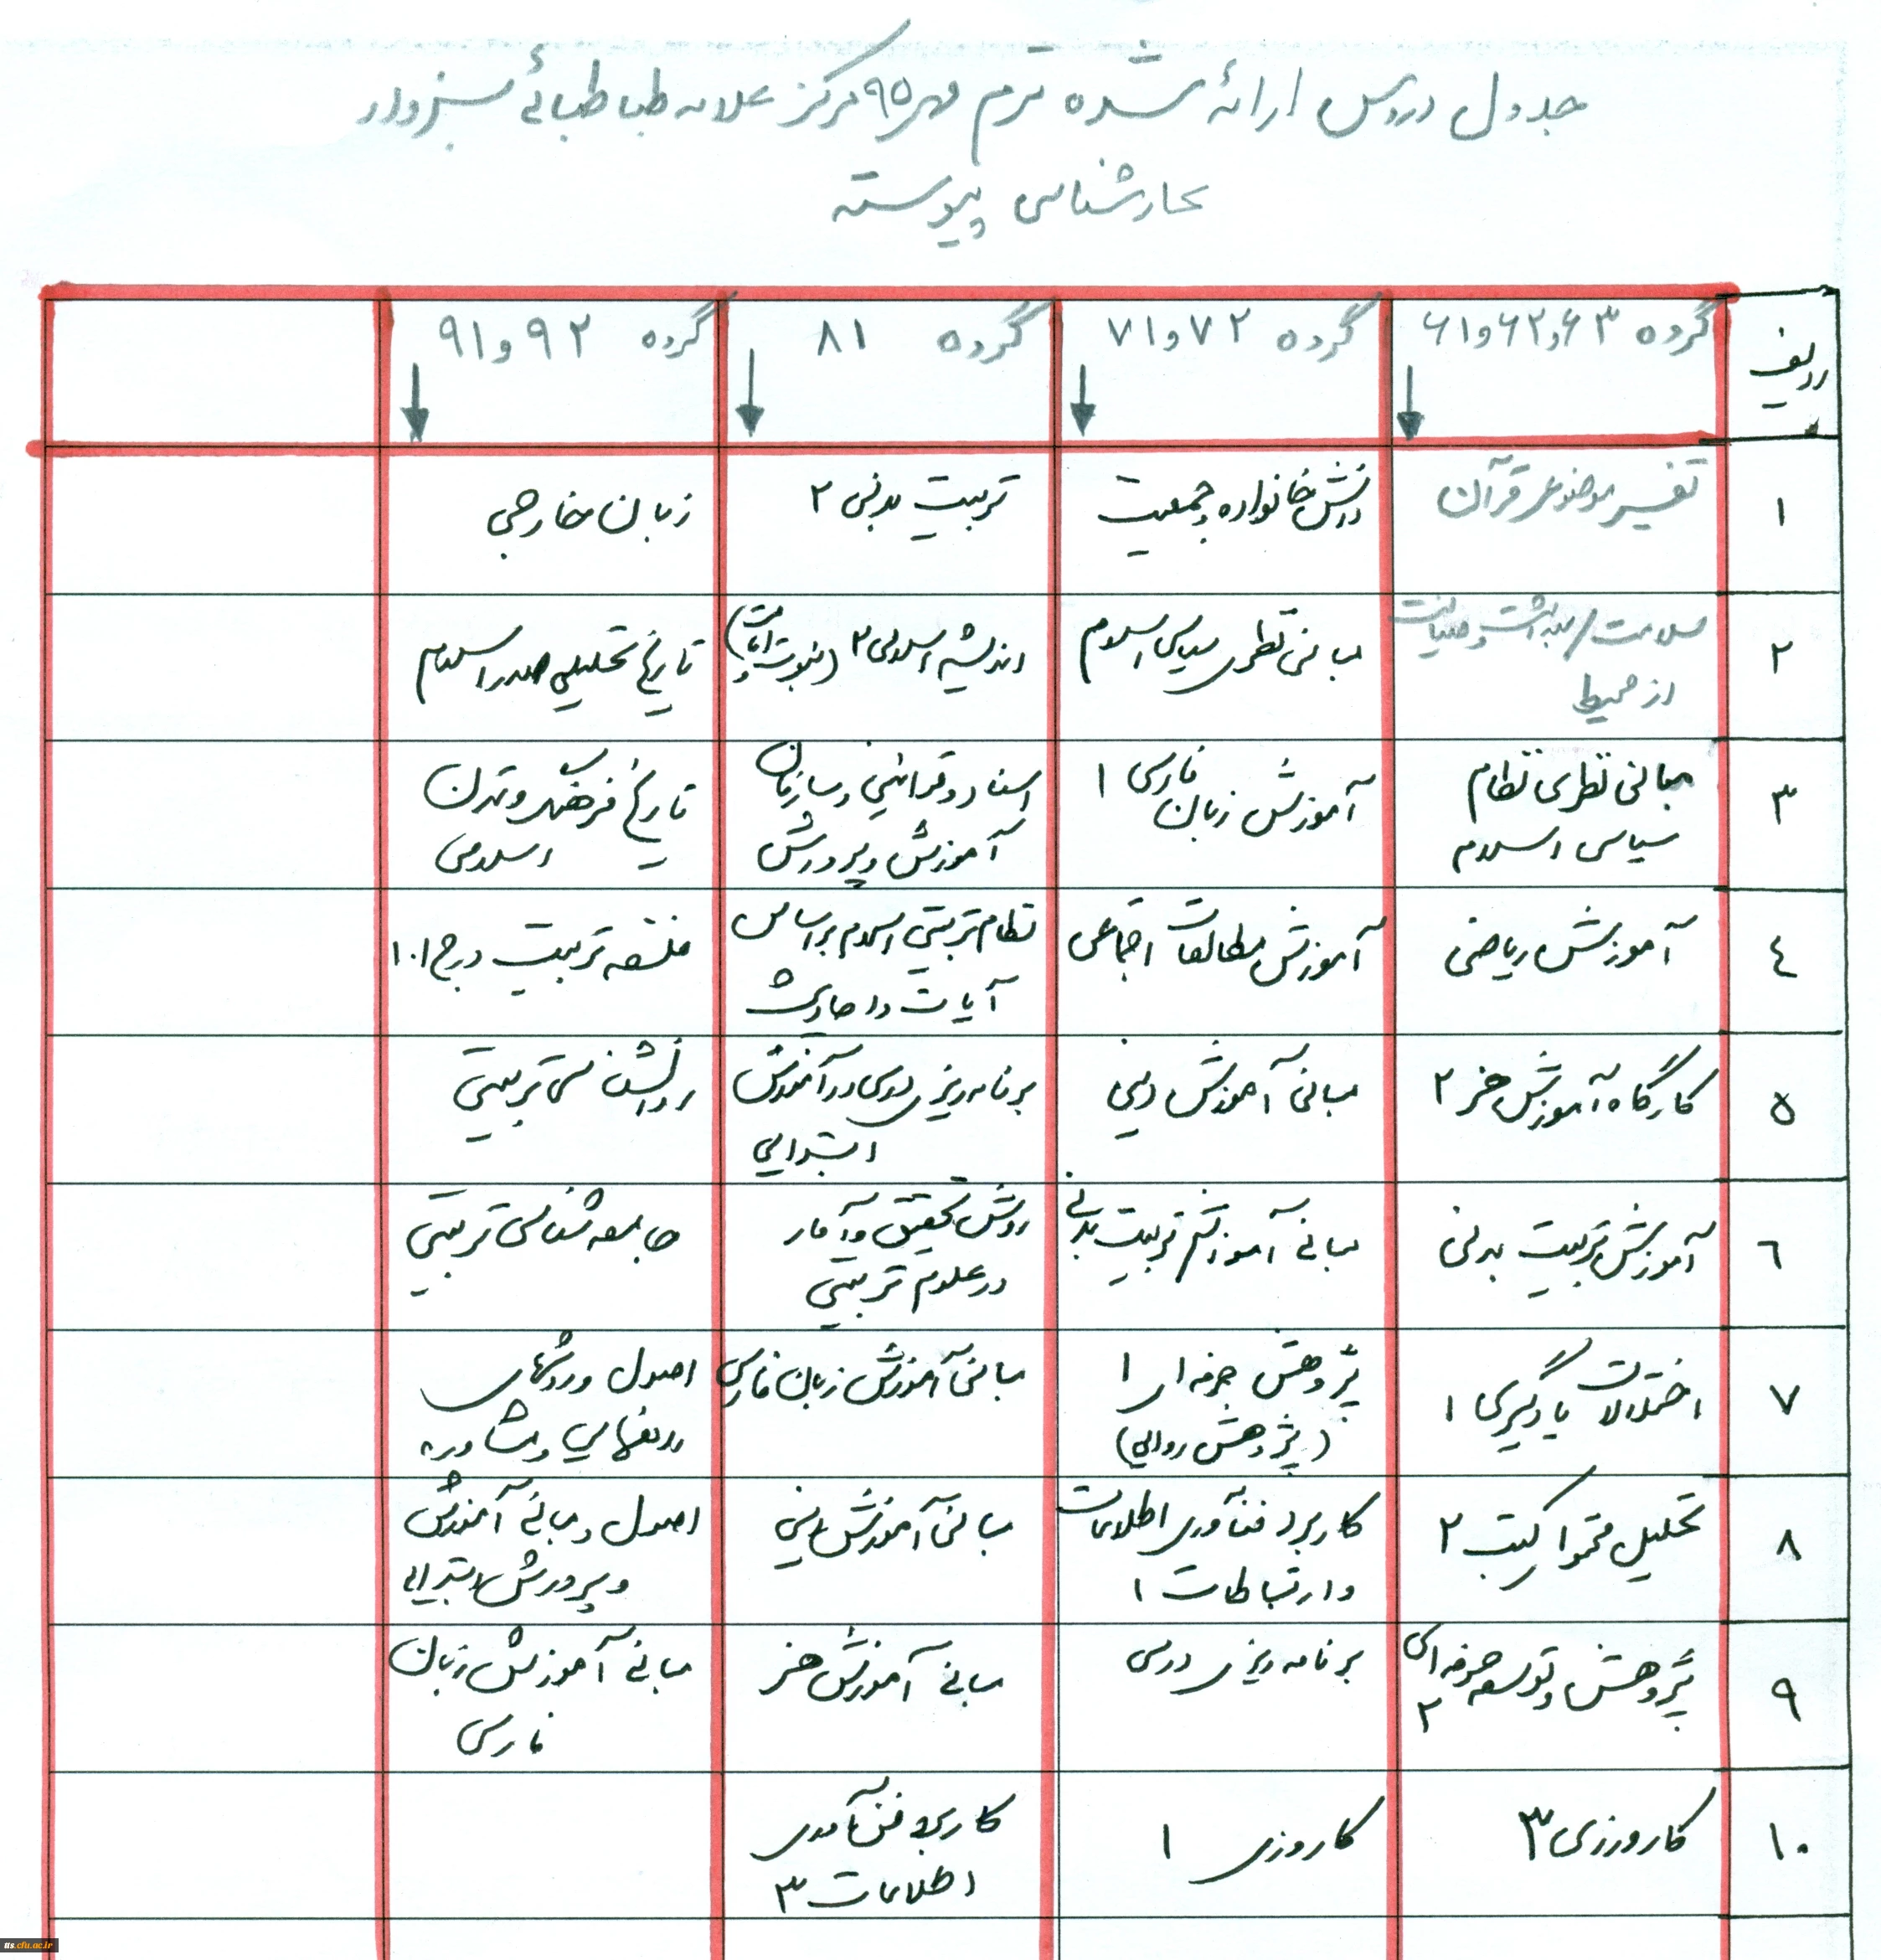 جدول دروس ارائهٔ شده ترم مهر ۹۵ مرکز علامه طباطبائی سبزوار
کارشناسی پیوسته
ردیف
گروه ۶۳و۶۲و۶۱
گروه ۷۲و۷۱
گروه ۸۱
گروه ۹۲و۹۱
۱
تفسیر موضوعی قرآن
دانش خانواده و جمعیت
تربیت بدنی ۲
زبان خارجی
۲
سلامت/بهداشت و صیانت
از محیط
مبانی نظری سیاسی اسلام
اندیشه اسلامی ۲ (نبوت و امامت)
تاریخ تحلیلی صدر اسلام
۳
مبانی نظری نظام
سیاسی اسلام
آموزش زبان فارسی ۱
اسناد و قوانین و سازمان
آموزش و پرورش
تاریخ فرهنگ و تمدن
اسلامی
۴
آموزش ریاضی
آموزش مطالعات اجتماعی
نظام تربیتی اسلام براساس
آیات و احادیث
فلسفه تربیت در ج.ا.ا
۵
کارگاه آموزش هنر ۲
مبانی آموزش دینی
برنامه ریزی درسی در آموزش
ابتدایی
روانشناسی تربیتی
۶
آموزش تربیت بدنی
مبانی آموزش تربیت بدنی
روش تحقیق و آمار
در علوم تربیتی
جامعه شناسی تربیتی
۷
اختلالات یادگیری ۱
پژوهش حرفه ای ۱
(پژوهش روایی)
مبانی آموزش زبان فارسی
اصول و روشهای
راهنمایی و مشاوره
۸
تحلیل محتوا کتب ۲
کاربرد فنآوری اطلاعات
و ارتباطات ۱
مبانی آموزش دینی
اصول و مبانی آموزش
و پرورش ابتدایی
۹
پژوهش و توسعه حرفه ای
۲
برنامه ریزی درسی
مبانی آموزش هنر
مبانی آموزش زبان
فارسی
۱۰
کارورزی ۳
کاروزی ۱
کاربرد فن آوری
اطلاعات ۳
tis.cfu.ac.ir